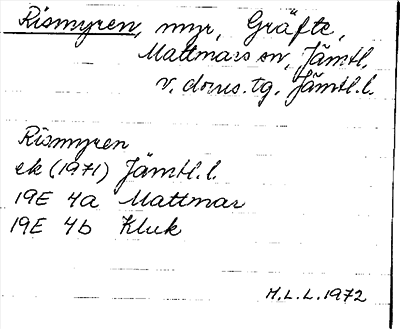 Rismyren, myr, Gräfte,
Mattmars sn, Jämtl.
v. doms. tg. Jämtl. l.
Rismyren
ek (1971) Jämtl. l.
19E 4a Mattmar
19E 4b Kluk
H.L.L. 1972